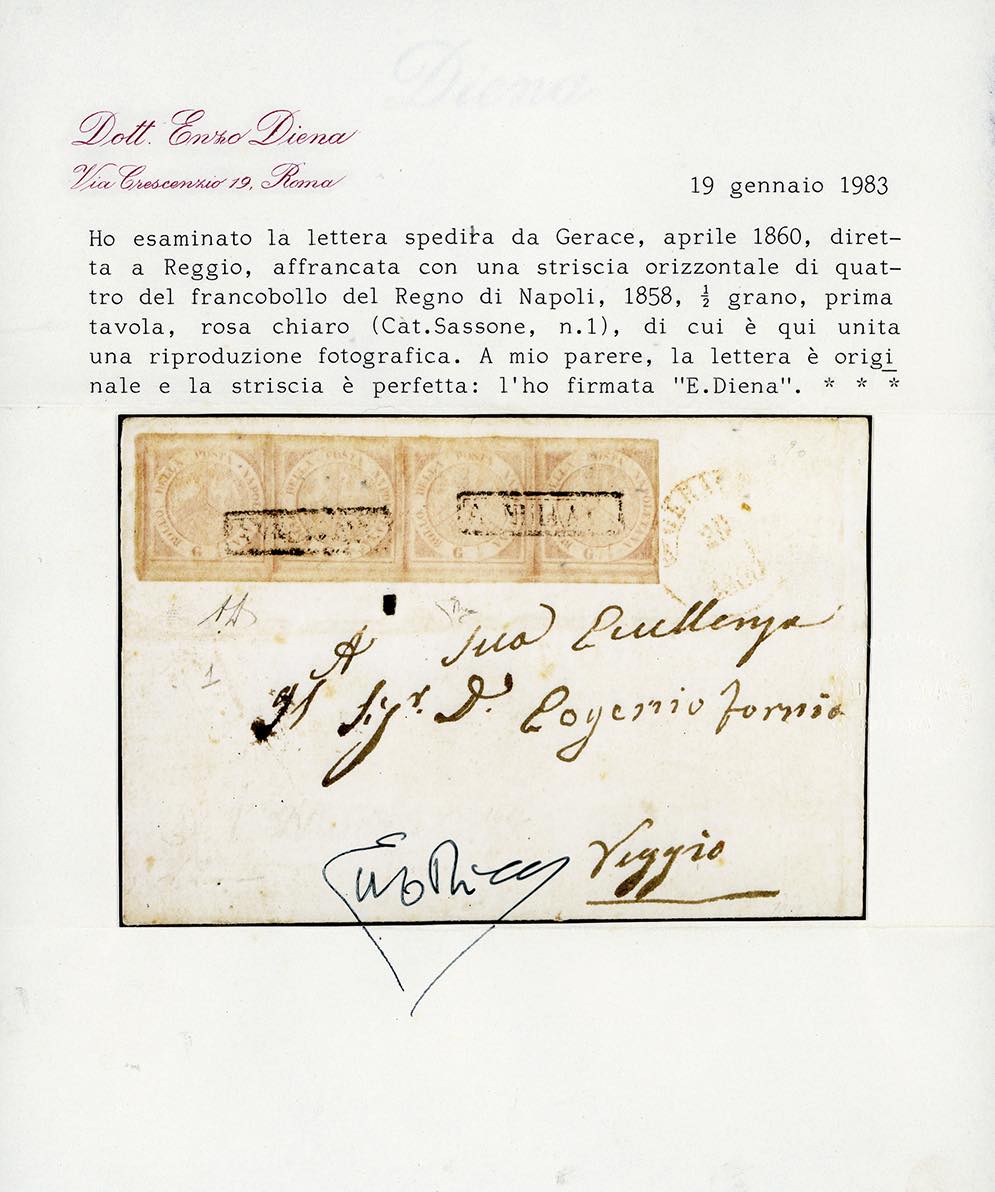 Diena
Dott. Enzo Diena
Via Crescenzio 19, Roma
19 gennaio 1983
Ho esaminato la lettera spedita da Gerace, aprile 1860, diret-
ta a Reggio, affrancata con una striscia orizzontale di quat-
tro del francobollo del Regno di Napoli, 1858, ½ grano, prima
tavola, rosa chiaro (Cat.Sassone, n.1), di cui è qui unita
una riproduzione fotografica. A mio parere, la lettera è origi
nale e la striscia è perfetta: l'ho firmata "E.Diena". * * *
BOLLO DELLA POSTA NAPOLETANA
G
A Sua Eccellenza
Sigr. D.
Reggio
1